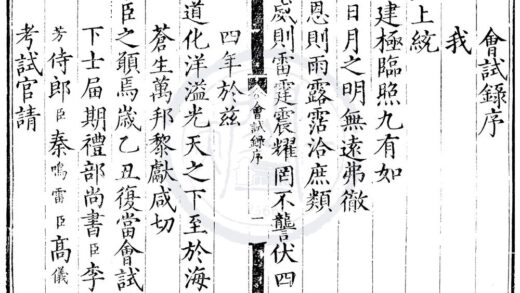 會試錄序
我
上統
建極臨照九有如
日月之明無遠弗徹
恩則雨露霑洽庶類
威則雷霆震耀罔不讋伏四
會試錄序 一
四年於茲
道化洋溢光天之下至於海
蒼生萬邦黎獻咸切
臣之願焉歲乙丑復當會試
下士屆期禮部尚書臣李
芳侍郎臣秦鳴雷臣高儀
考試官請